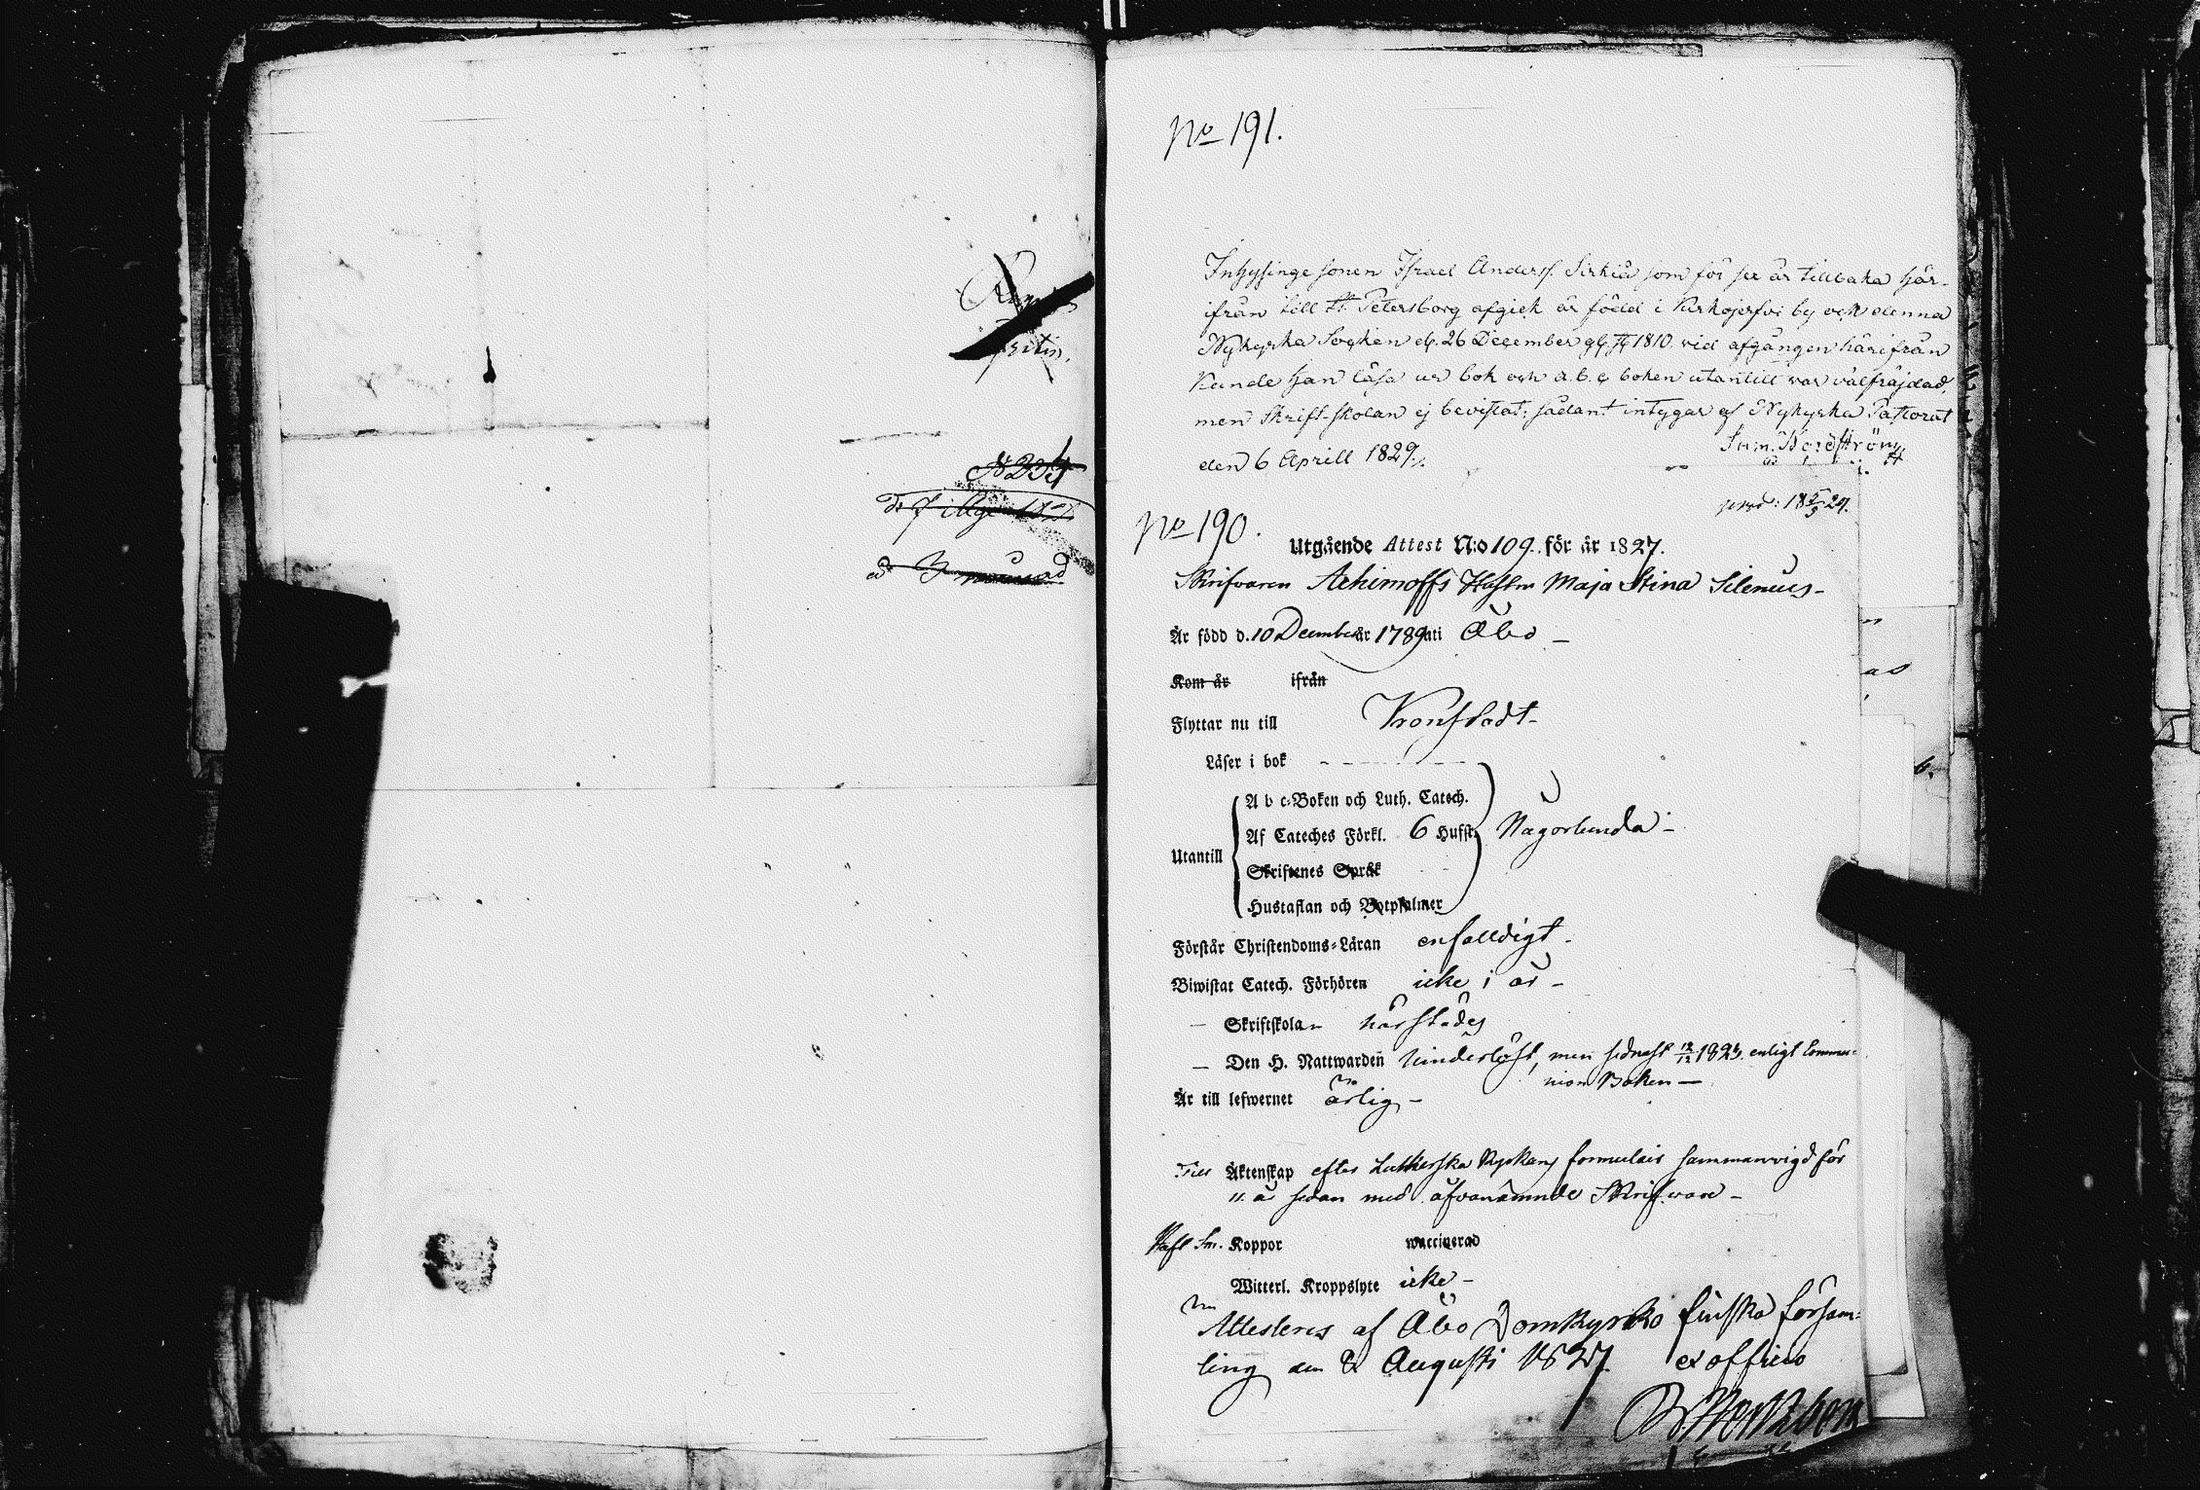 No 191.
Inhysinge sonen Israel Anders. Sirkiä som för sex år tillbaka här-
ifrån till St. Petersborg afgick är född i Kirkojerfvi by och denna
Nykyrka Socken d. 26 December 1810. vid afgången härifrån
Kunde han läsa ur bok och a.b.c boken utantill var välfräjdad,
men Skrift-skolan ej bevistat; sådant intygar af Nykyrka Pastorat
den 6 Aprill 1829.
Nordström
No 190.
Utgående Attest N:o 109. för år 1827.
Skrifvaren Achimoffs Hustru Maja Stina Silenius-
Är född d. 10 December år 1789 uti Åbo -
Kom år ifrån
Flyttar nu till Kronstadt-
Läser i bok
A b c-Boken och Luth. Catech.
Af Cateches Förkl. 6 Hufst. Någorlunda -
Utantill
Skriftenes Språk
Hustaflan och Botpsalmer
Förstår Christendoms-Läran enfalldigt -
Biwistat Catech. Förhören icke i år -
- Skriftskolan härstädes
- Den H. Nattwarden hinderlöst, men sednast 1824. enligt Commu-
nion Boken -
Är till lefwernet ärlig -
Till Äktenskap efter Lutherska Kyrkans formulair sammanvigd för
11. år sedan med ofvannämnde Skrifvare -
Haft Sm. Koppor waccinerad
Witterl. Kroppslyte icke -
Attesteras af Åbo Domkyrko finska försam-
ling den 2 Augusti 1827. ex officio